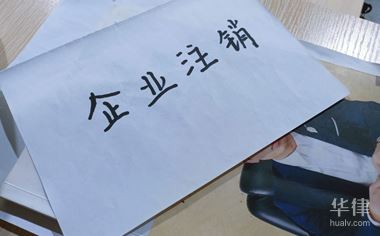 企业注销
华律
hualv.com